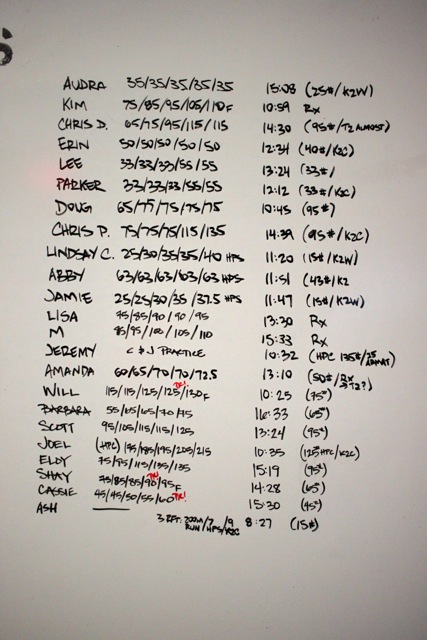 S
AUDRA 35/35/35/35/35 15:08 (25#/K2W)
KIM 75/85/95/105/110F 10:59 Rx
CHRIS D. 65/75/95/115/115 14:30 (95#/T2 ALMOST)
ERIN 50/50/50/50/50 12:34 (40#/K2C)
LEE 33/33/33/55/55 13:24 (33#/
PARKER 33/33/33/55/55 12:12 (33#/K2C)
DOUG 65/75/75/75/75 10:45 (95#)
CHRIS P. 75/75/75/115/135 14:39 (95#/K2C)
LINDSAY C. 25/30/35/35/40 HPS 11:20 (15#/K2W)
ABBY 63/63/63/63/63 HPS 11:51 (43#/K2
JAMIE 25/25/30/35/37.5 HPS 11:47 (15#/K2W)
LISA 75/85/90/90/95 13:30 Rx
M 85/95/100/105/110 15:33 Rx
JEREMY C & J PRACTICE 10:32 (HPC 135#/25
AMANDA 60/65/70/70/72.5 13:10 (50#/
WILL 115/115/125/125/130F PR! 10:25 (75#)
BARBARA 55/65/65/70/75 16:33 (65#)
SCOTT 95/105/115/115/125 13:24 (95#)
JOEL (HPC) 185/195/205/215 10:35 (125# HPC/K2C)
ELOY 75/95/115/135/135 15:19 (95#)
SHAY 75/85/85/90/95F PR! 14:28 (65#)
CASSIE 45/45/50/55/60 PR! 15:30 (45#)
ASH 3 RFT: 200M/7/9 8:27 (15#)
RUN/HPS/K2C